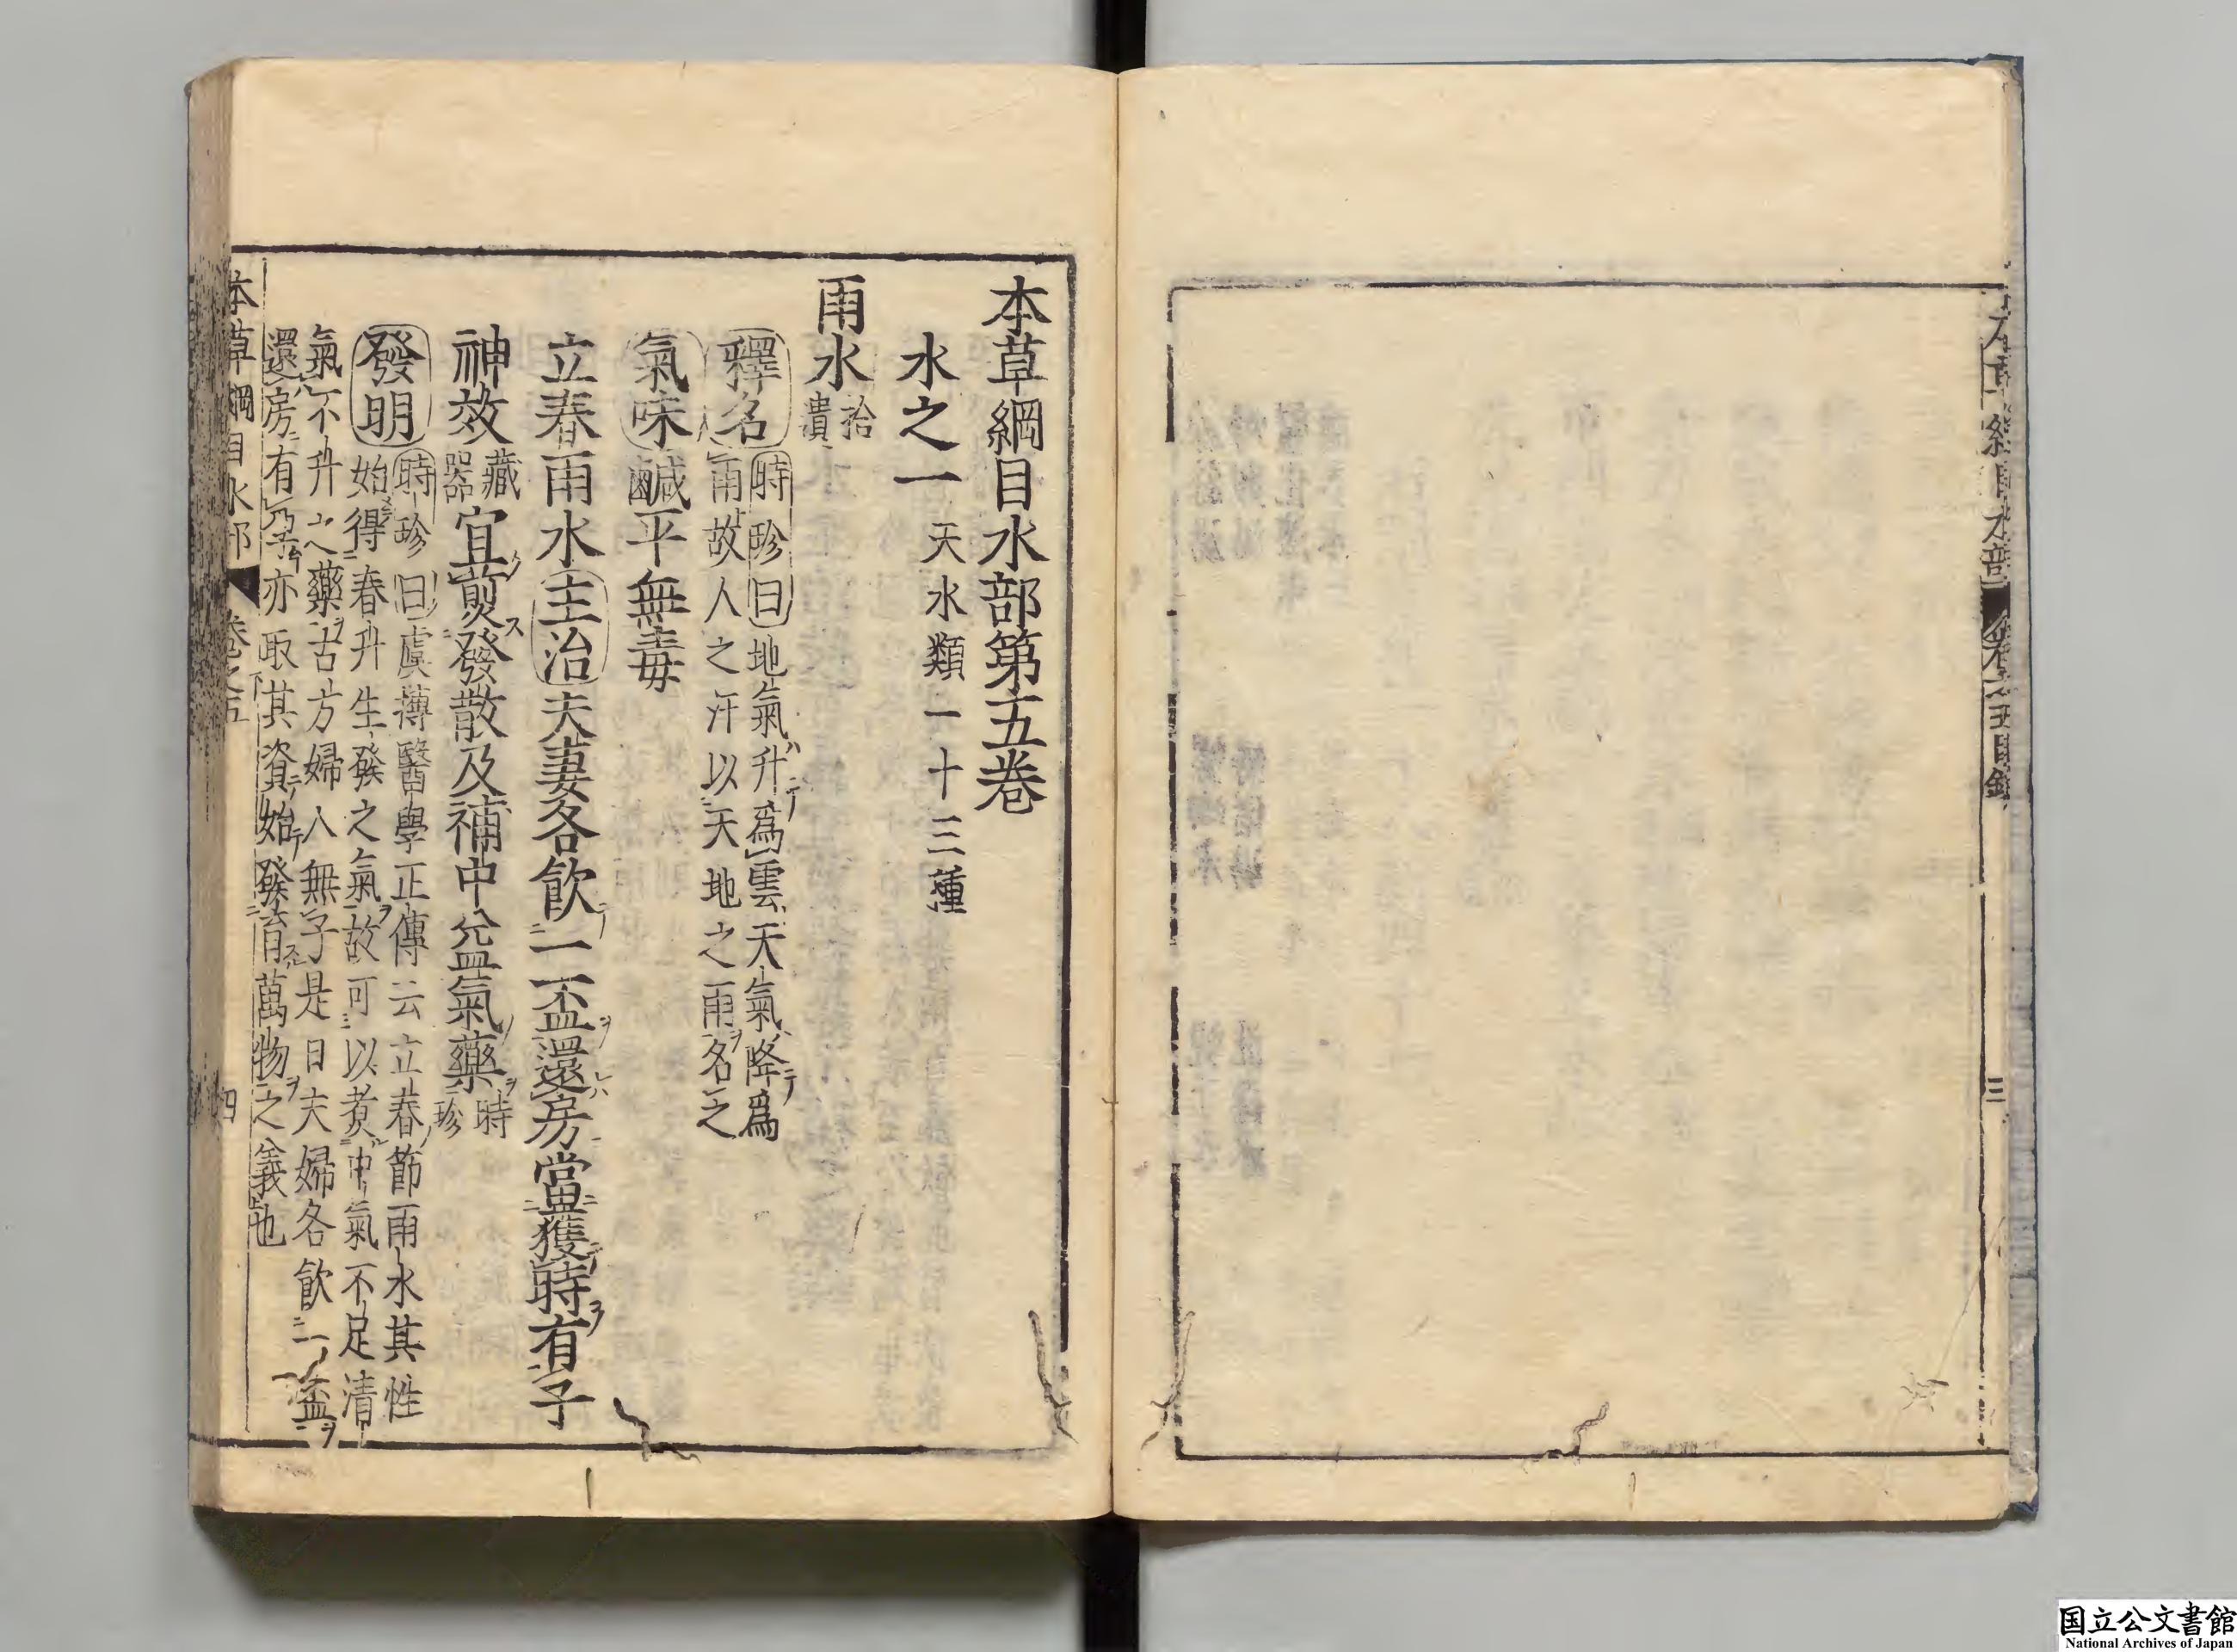 本草綱目水部 卷之五目録 三
本草綱目水部第五卷
水之一 天水類一十三種
雨水 拾
遺
釋名 時珍曰地氣升為雲天氣降為
雨故人之汗以天地之雨名之
氣味鹹平無毒
立春雨水主治夫妻各飲一盃還房當獲時有子
神效 藏
器 宜煎發散及補中益氣藥 時
珍
發明 時珍曰虞摶醫學正傳云立春節雨水其性
始得春升生發之氣故可以煮中氣不足清
氣不升之藥古方婦人無子是日夫婦各飲一盃
還房有孕亦取其資始發育萬物之義也
本草綱目水部 卷之五 四
国立公文書館
National Archives of Japan